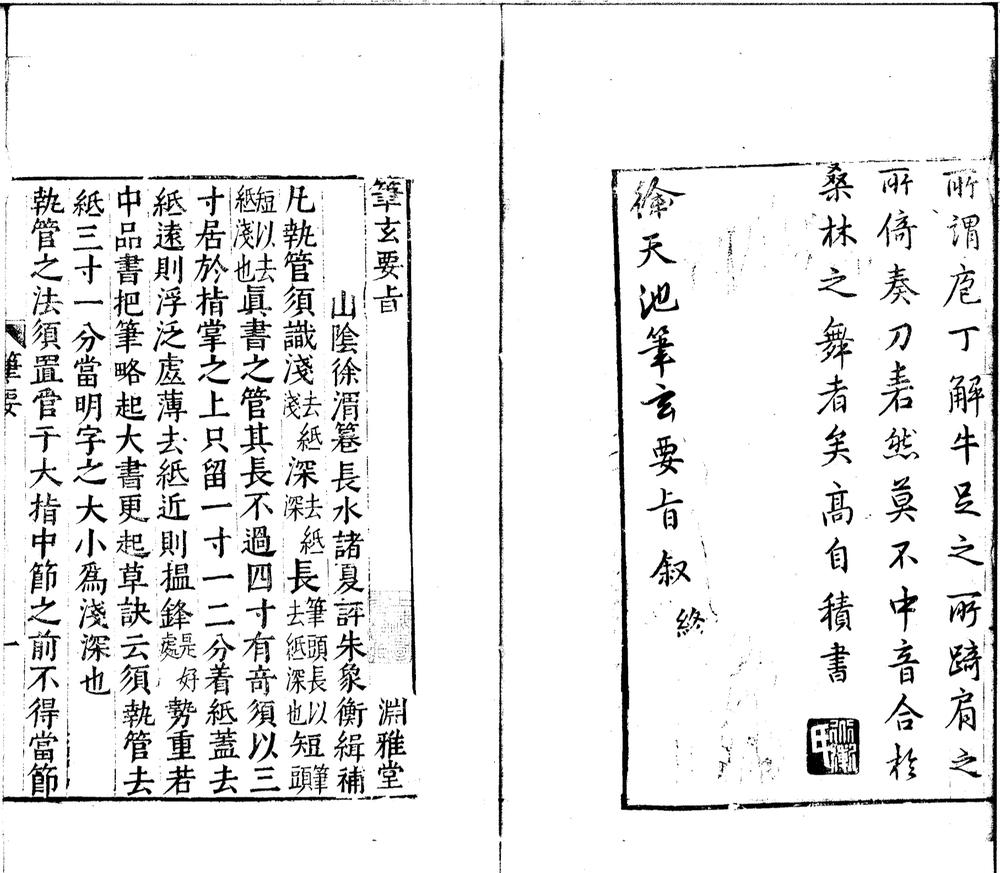 所謂庖丁解牛足之所踦肩之
所倚奏刀砉然莫不中音合於
桑林之舞者矣高自積書
徐天池筆玄要旨叙終
筆玄要旨 淵雅堂
山陰徐渭篹長水諸夏評朱象衡緝補
凡執管須識淺去紙淺深去紙深長筆頭長以去紙深也短筆頭
短以去紙淺也眞書之管其長不過四寸有奇須以三
寸居於指掌之上只留一寸一二分着紙蓋去
紙遠則浮泛虛薄去紙近則搵鋒是好處勢重若
中品書把筆略起大書更起草訣云須執管去
紙三寸一分當明字之大小爲淺深也
執管之法須置管于大指中節之前不得當節
筆要 一